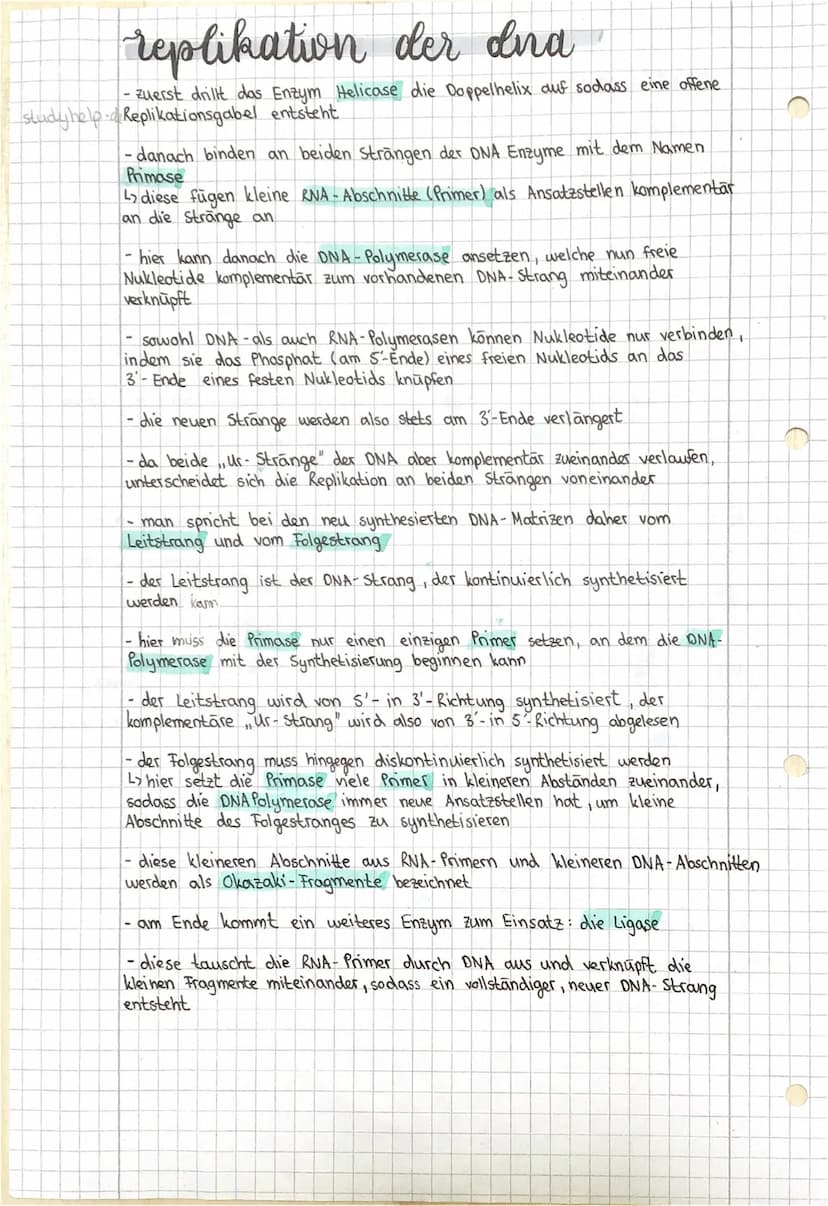 replikation der dna
- zuerst drillt das Enzym Helicase die Doppelhelix auf sodass eine offene
studyhelp.d Replikationsgabel entsteht
- danach binden an beiden Strängen der DNA Enzyme mit dem Namen
Primase
↳ diese fügen kleine RNA-Abschnitte (Primer) als Ansatzstellen komplementär
an die Stränge an
- hier kann danach die DNA-Polymerase ansetzen, welche nun freie
Nukleotide komplementär zum vorhandenen DNA-Strang miteinander
verknüpft
- sowohl DNA-als auch RNA-Polymerasen können Nukleotide nur verbinden,
indem sie das Phosphat (am 5'-Ende) eines freien Nukleotids an das
3'-Ende eines festen Nukleotids knüpfen
- die neuen Stränge werden also stets am 3'-Ende verlängert
- da beide „Ur-Stränge" der DNA aber komplementär zueinander verlaufen,
unterscheidet sich die Replikation an beiden Strängen voneinander
- man spricht bei den neu synthesierten DNA-Matrizen daher vom
Leitstrang und vom Folgestrang
- der Leitstrang ist der DNA-Strang, der kontinuierlich synthetisiert
werden kann
- hier muss die Primase nur einen einzigen Primer setzen, an dem die DNA-
Polymerase mit der Synthetisierung beginnen kann
- der Leitstrang wird von 5'- in 3'-Richtung synthetisiert, der
komplementäre „Ur-Strang" wird also von 3'-in 5'-Richtung abgelesen
- der Folgestrang muss hingegen diskontinuierlich synthetisiert werden
↳ hier setzt die Primase viele Primer in kleineren Abständen zueinander,
sodass die DNA Polymerase immer neue Ansatzstellen hat, um kleine
Abschnitte des Folgestranges zu synthetisieren
- diese kleineren Abschnitte aus RNA-Primern und kleineren DNA-Abschnitten
werden als Okazaki-Fragmente bezeichnet
- am Ende kommt ein weiteres Enzym zum Einsatz: die Ligase
- diese tauscht die RNA-Primer durch DNA aus und verknüpft die
kleinen Fragmente miteinander, sodass ein vollständiger, neuer DNA-Strang
entsteht